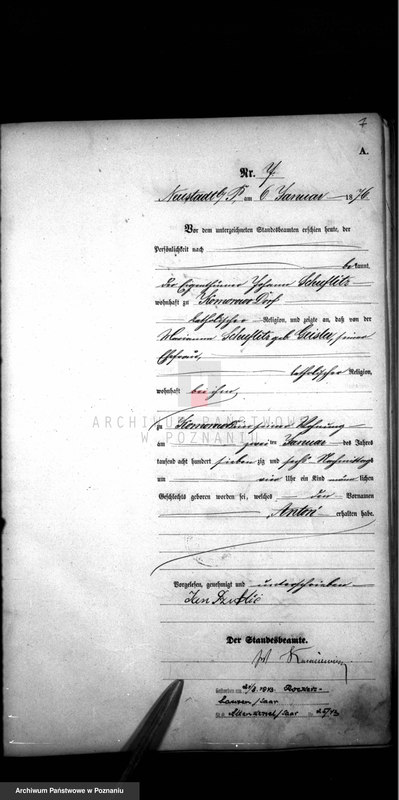 7
A.
Nr. 7
Neustadt b/P, am 6 Januar 1876
Vor dem unterzeichneten Standesbeamten erschien heute, der
Persönlichkeit nach
bekannt,
der Eigenthümer Johann Schustlitz
wohnhaft zu Komorowo Dorf
katholischer Religion, und zeigte an, daß von der
Marianna Schustlitz geb Geisler, seiner
Ehefrau,
katholischer Religion,
wohnhaft bei ihm,
zu Komorowo in seiner Wohnung
am zweiten Januar des Jahres
tausend acht hundert sieben zig und sechs Nachmittags
um vier Uhr ein Kind männlichen
Geschlechts geboren worden sei, welches den Vornamen
Anton erhalten habe.
Vorgelesen, genehmigt und unterschrieben
Jan
Der Standesbeamte.
Gestorben am 1943
/Saar
St.A. /Saar
ARCHIWUM PAŃSTWOWE
W POZNANIU
Archiwum Państwowe w Poznaniu